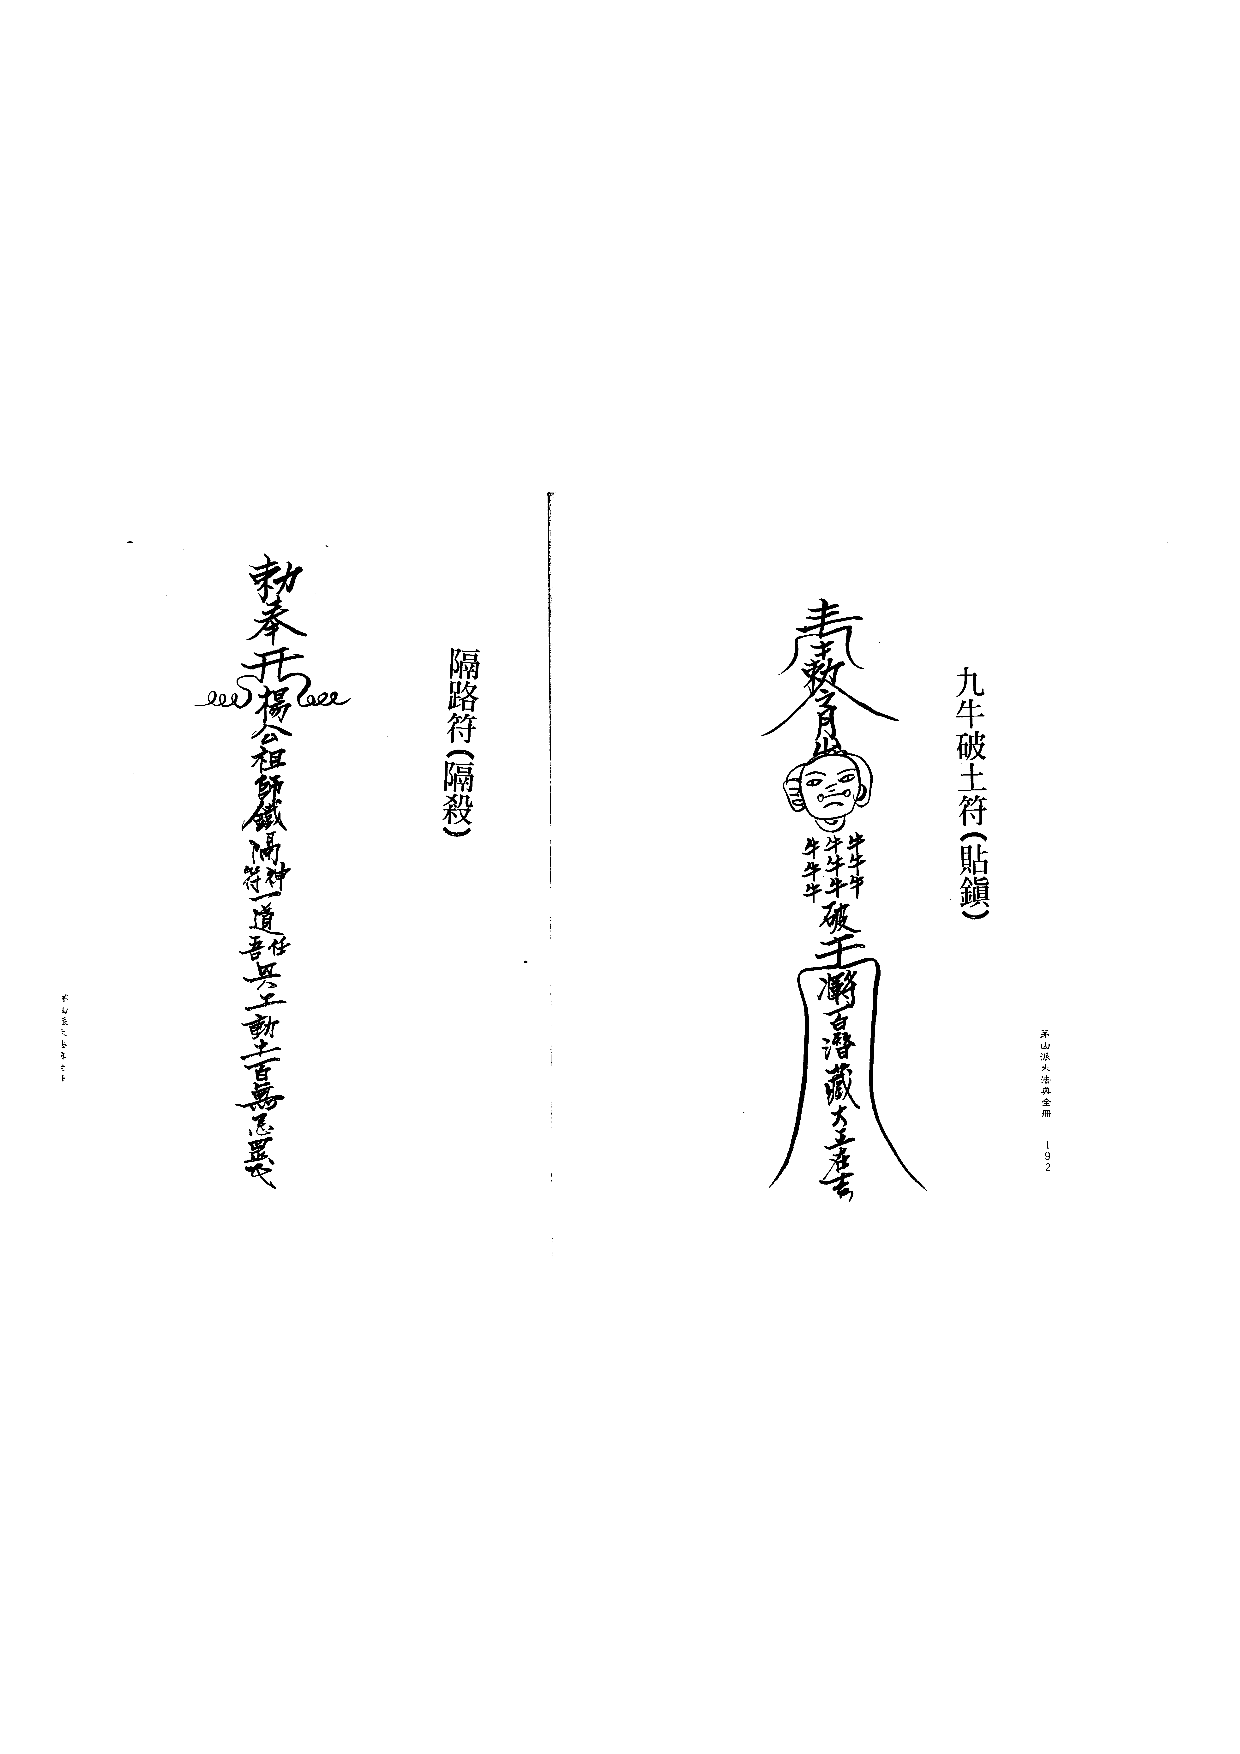 茅山派大法典全冊 192
九牛破土符(貼鎮)
勅
牛牛牛
牛牛牛
牛牛牛
破
百
潛
藏
大
王
在
吉
隔路符(隔殺)
勅奉
楊公祖師鐵隔
神符
一道
任吾
興工動土百無忌